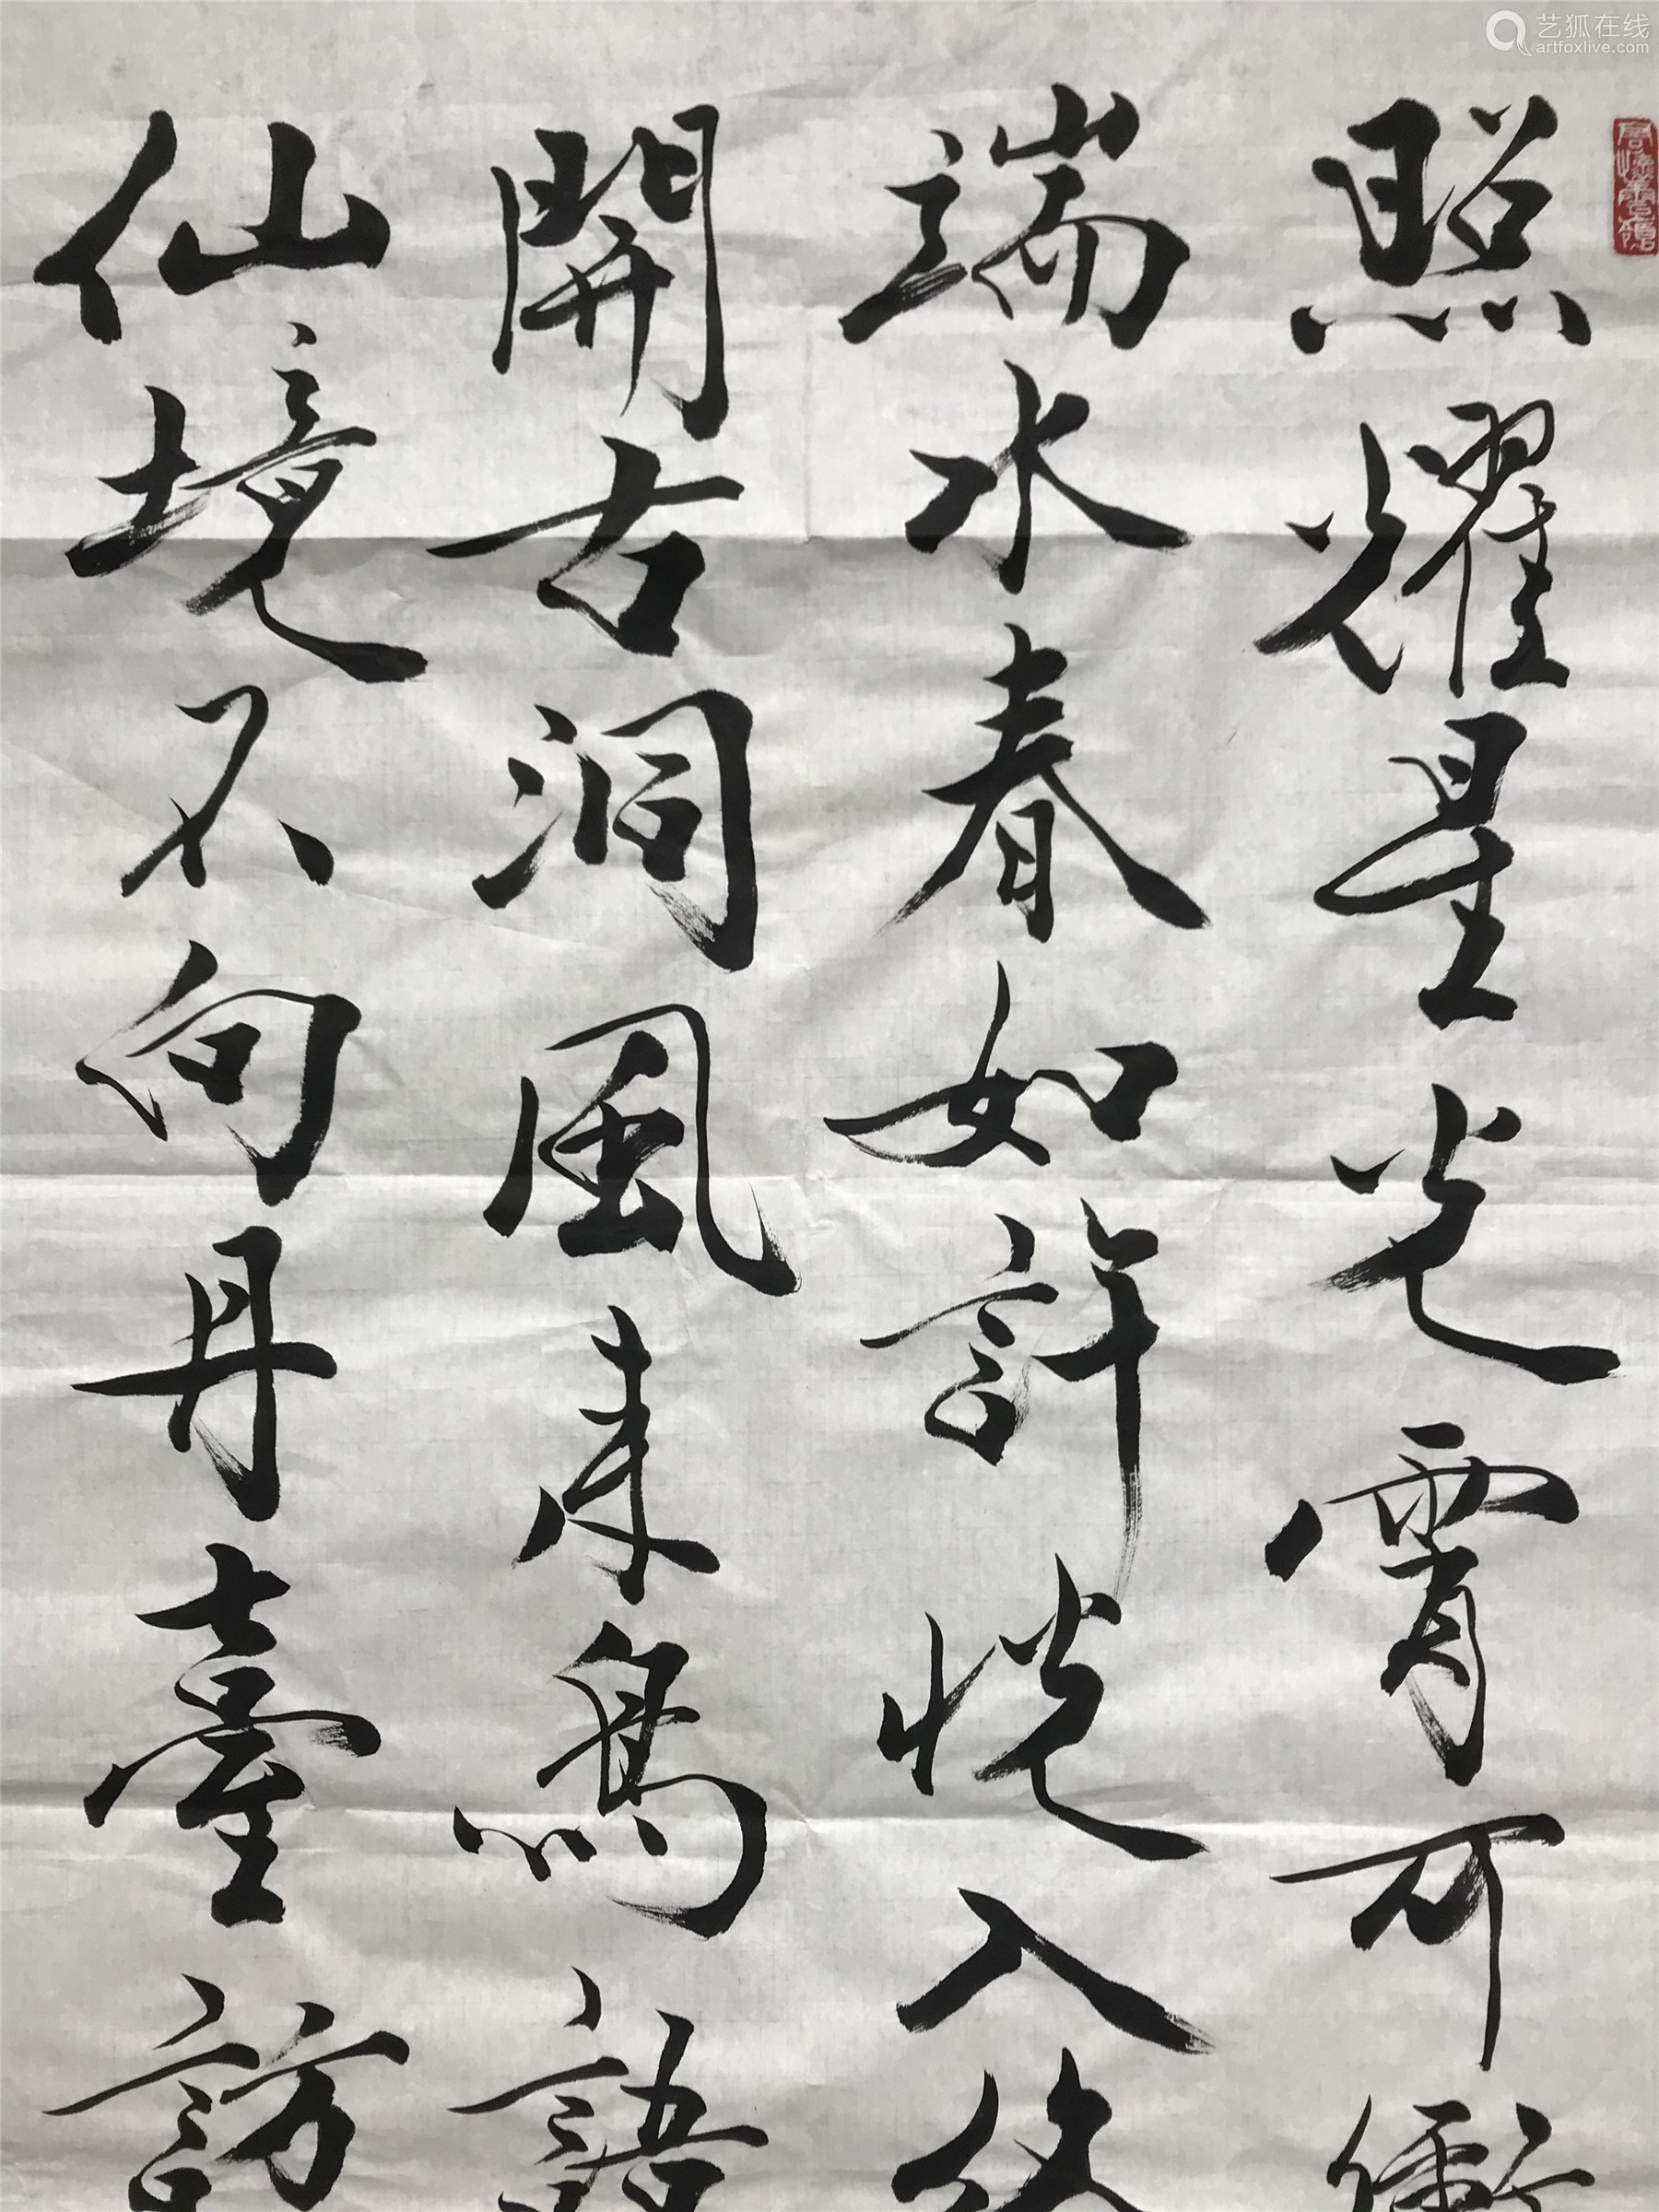 照耀星光霄可衝
端水春如許恍入
開古洞風来鳥語
仙境不向丹臺訪
艺狐在线
artfoxlive.com